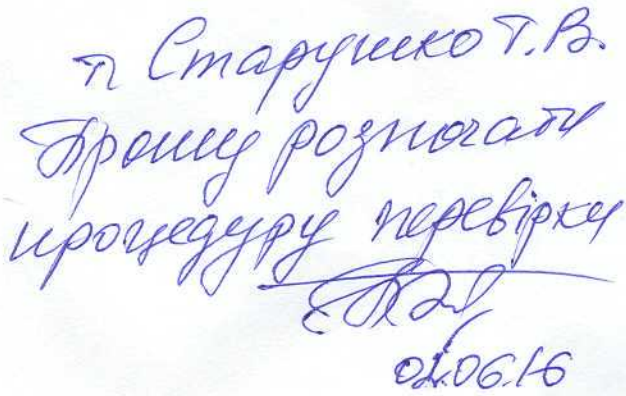 п Старушко Т.В.
Прошу розпочати
процедуру перевірки
01.06.16